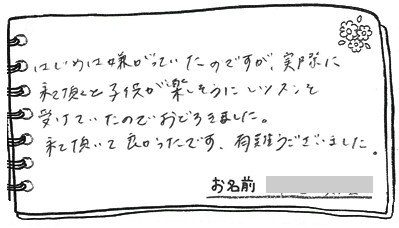 はじめは嫌がっていたのですが、実際に
来て頂くと子供が楽しそうにレッスンを
受けていたのでおどろきました。
来て頂いて良かったです、有難うございました。
お名前